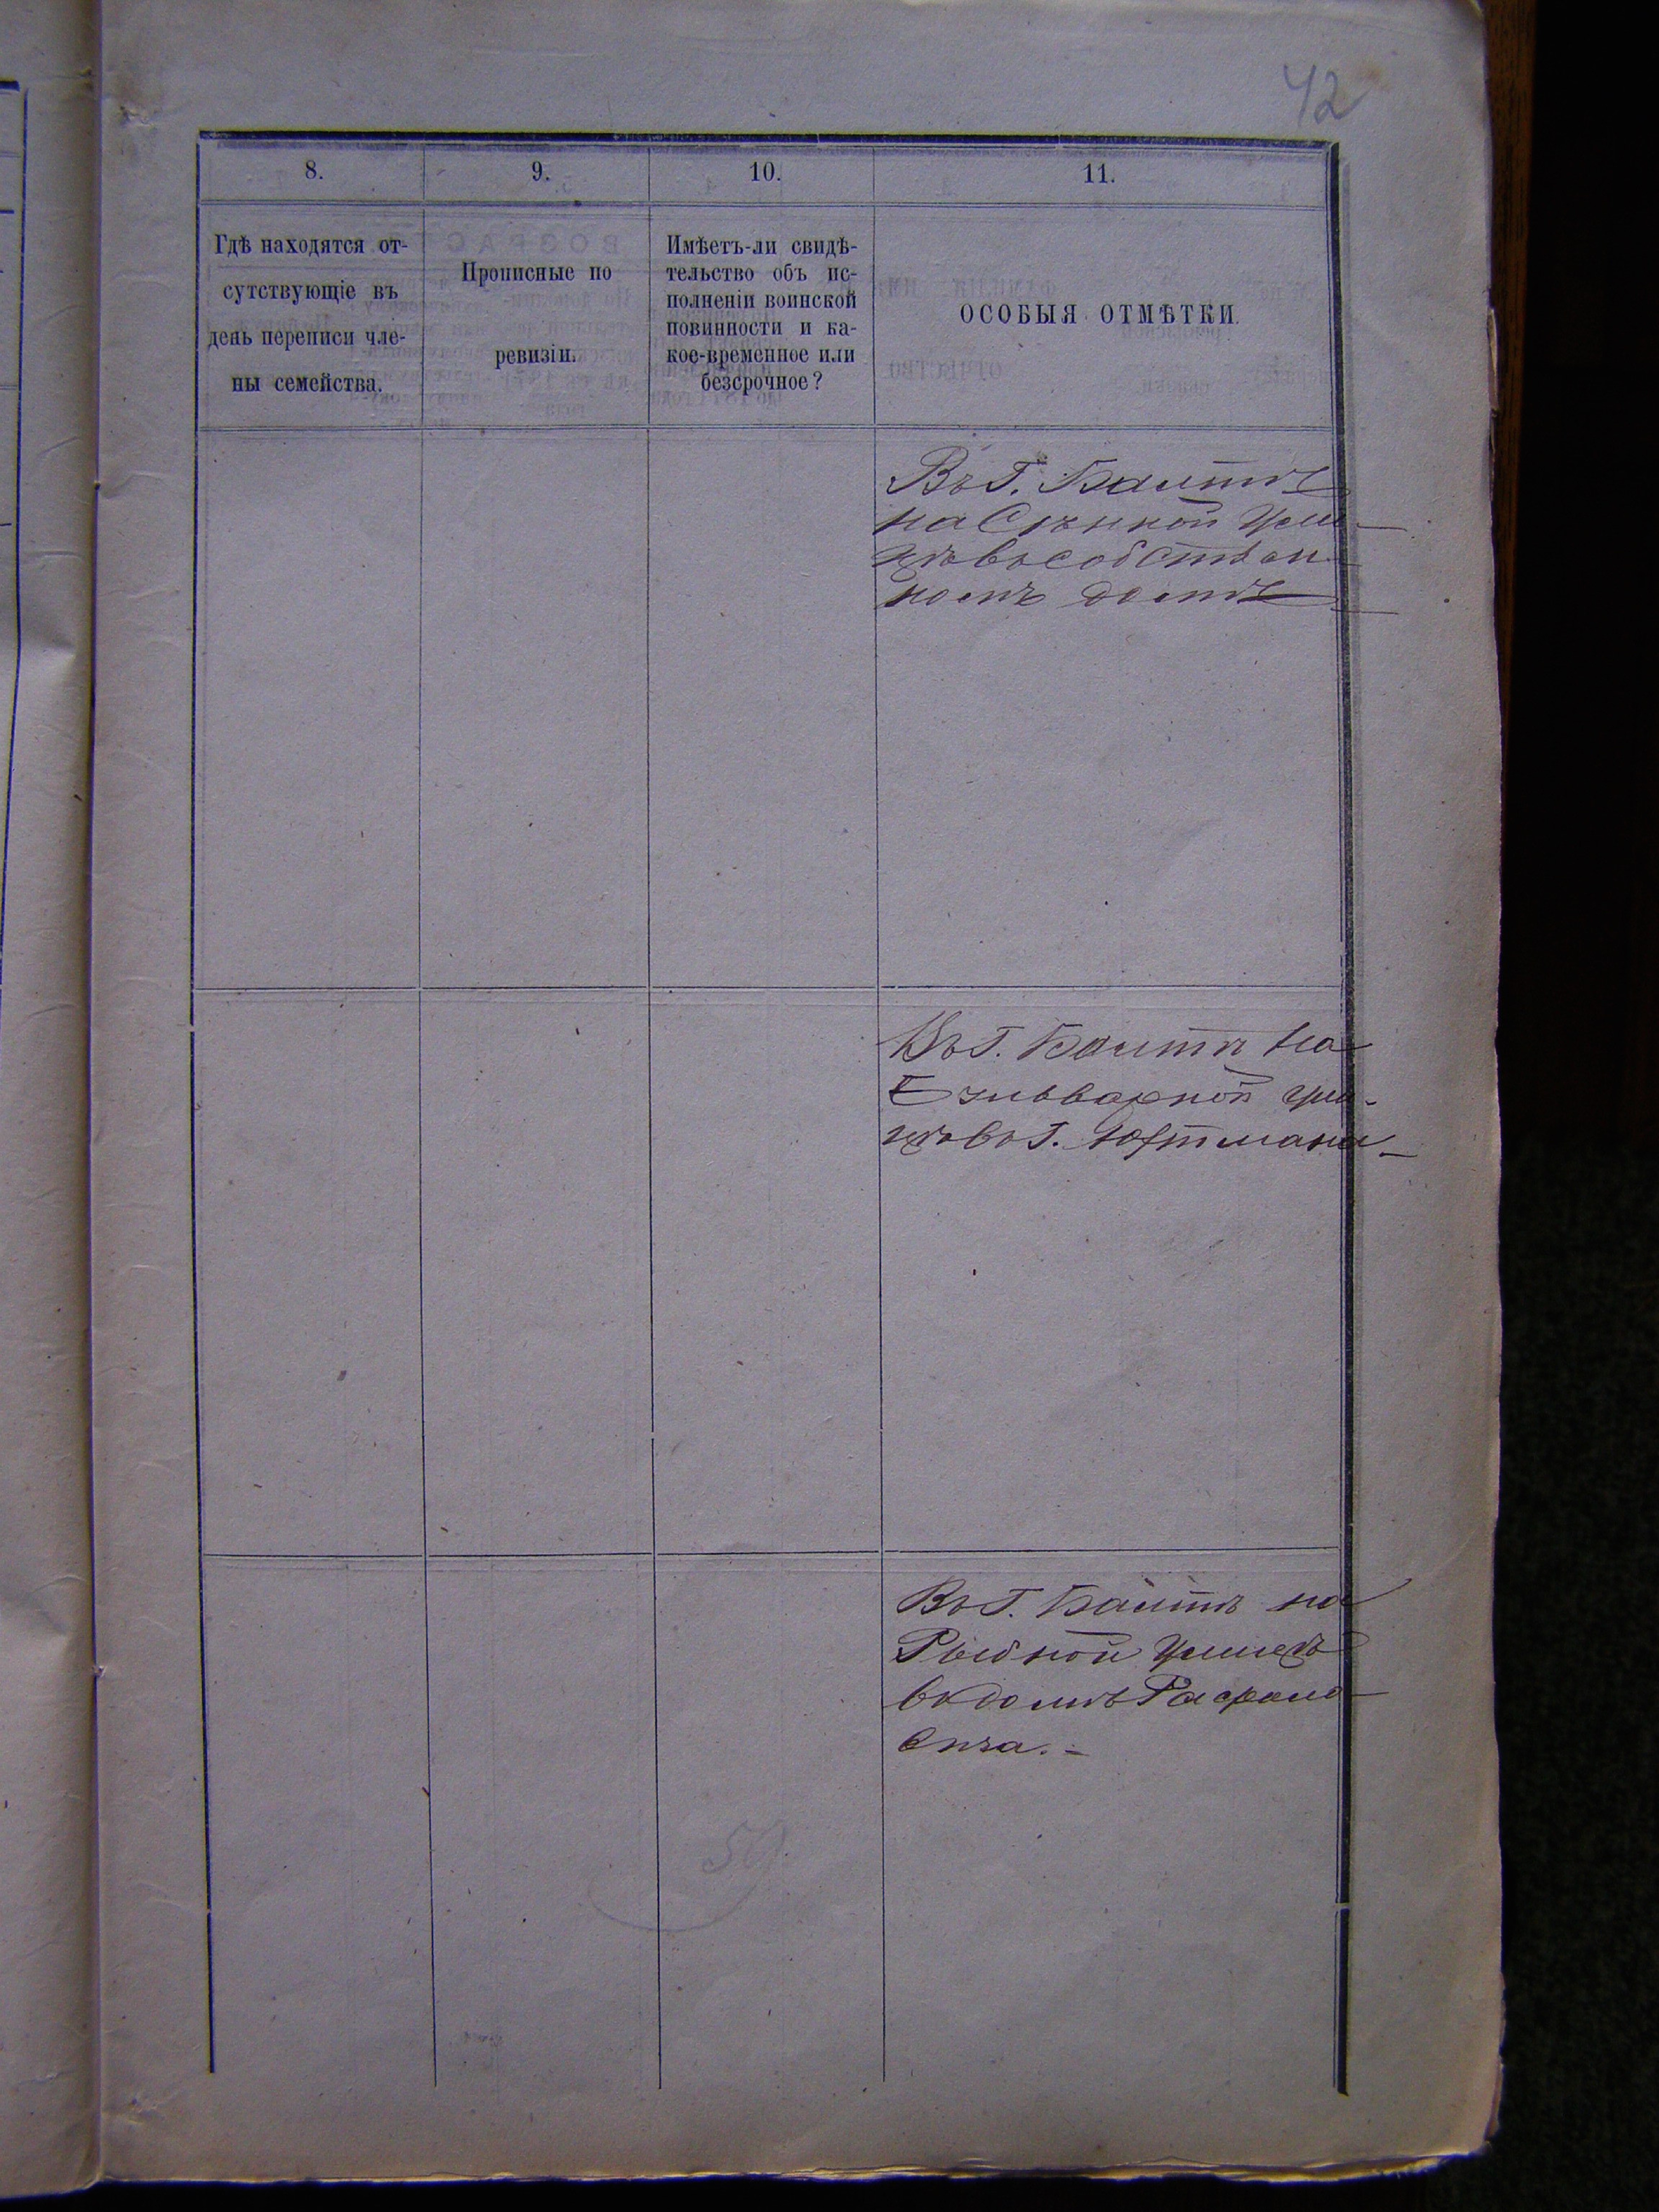 42
8.
9.
10.
11.
Гдѣ находятся от-
сутствующіе въ
день переписи чле-
ны семейства.
Прописные по
ревизіи.
Имѣетъ-ли свидѣ-
тельство объ ис-
полненіи воинской
повинности и ка-
кое-временное или
безсрочное?
ОСОБЫЯ ОТМѢТКИ.
Въ Г. Балтѣ
на улы-
цѣ въ собствен-
номъ домѣ
Въ Г. Балтѣ на
ули-
цѣ въ д.
Въ Г. Балтѣ на
Рыбной улицѣ
въ домѣ Рафало-
вича.
59